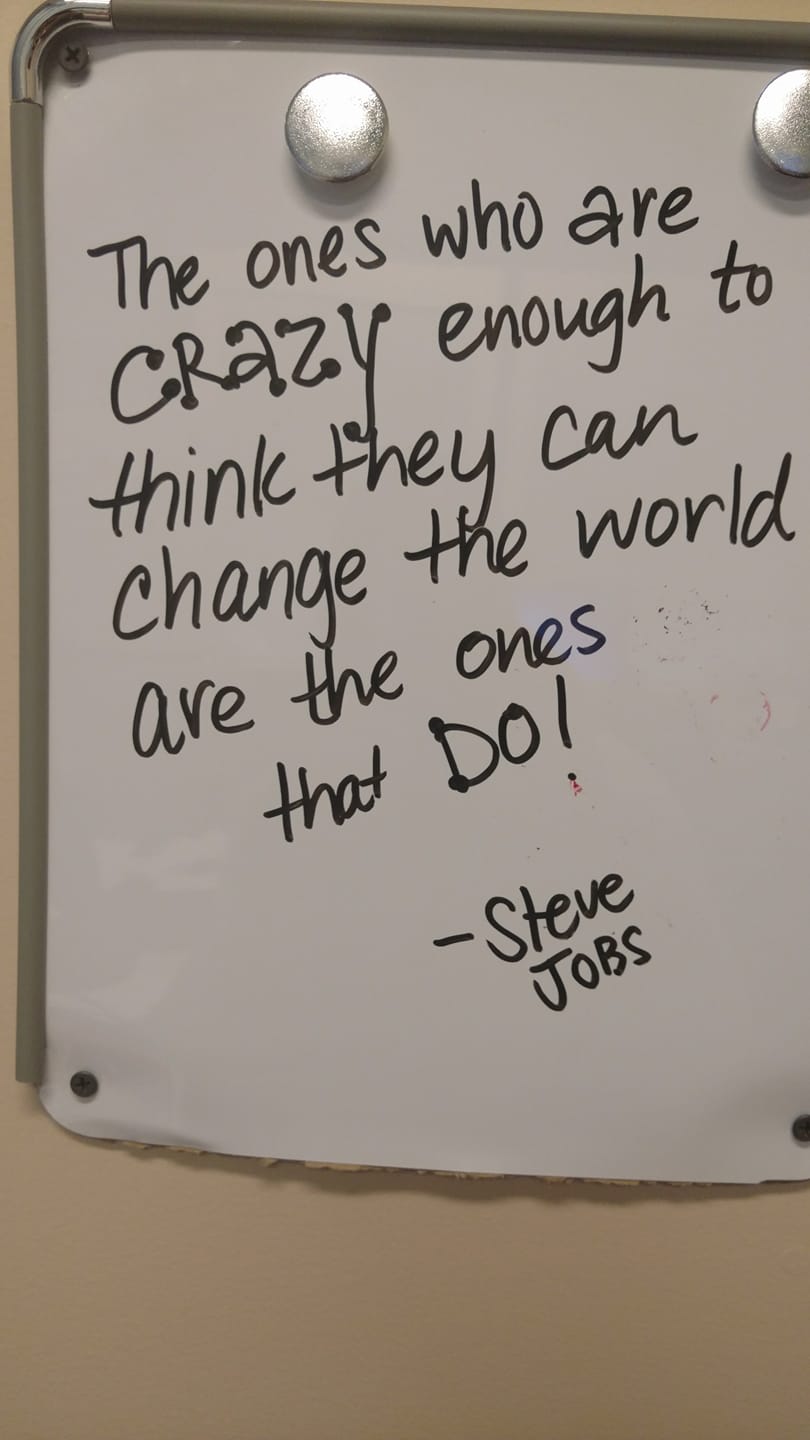 The ones who are
CRAZY enough to
think they can
change the world
are the ones
that DO!
- Steve
JOBS